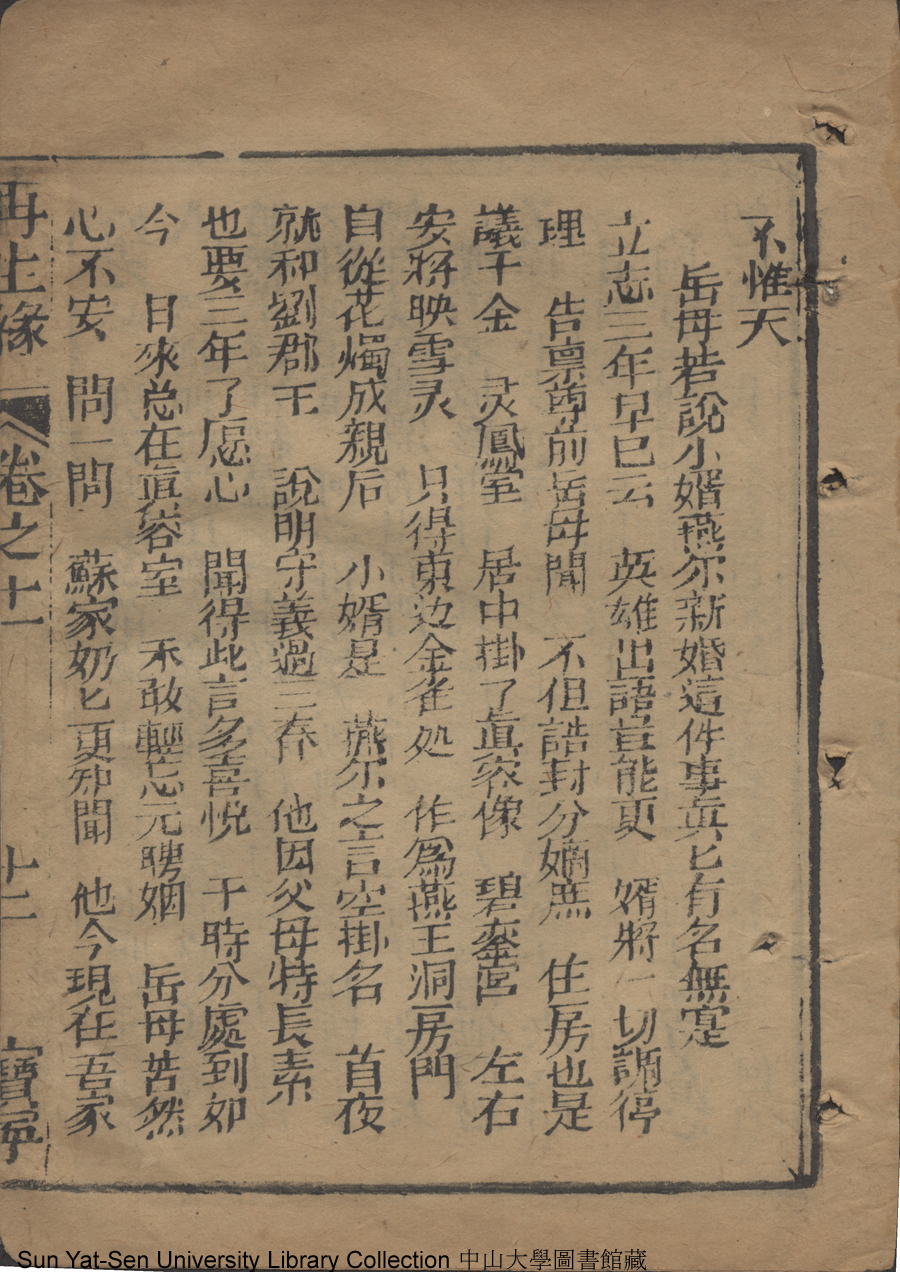 不惟天
岳母若說小婿燕尔新婚這件事真匕有名無寔
立志三年早已云　英雄出語豈能更　婿將一切調停
理　告禀尊前岳母聞　不但誥封分嫡庶　住房也是
議千金　灵鳳室　居中掛了真容像　碧鸞宮　左右
安將映雪灵　只得東边金雀処　作為燕王洞房門
自從花燭成親后　小婿是　燕尔之言空掛名　首夜
就和劉郡王　說明守義過三春　他因父母特長素
也要三年了愿心　聞得此言多喜悦　干時分處到如
今　日來总在真容室　不敢輕忘元聘姻　岳母若然
心不安　問一問　蘇家奶匕更知聞　他今現在吾家
再生缘　卷之十一　十二　寶寧
Sun Yat-Sen University Library Collection 中山大學圖書館藏